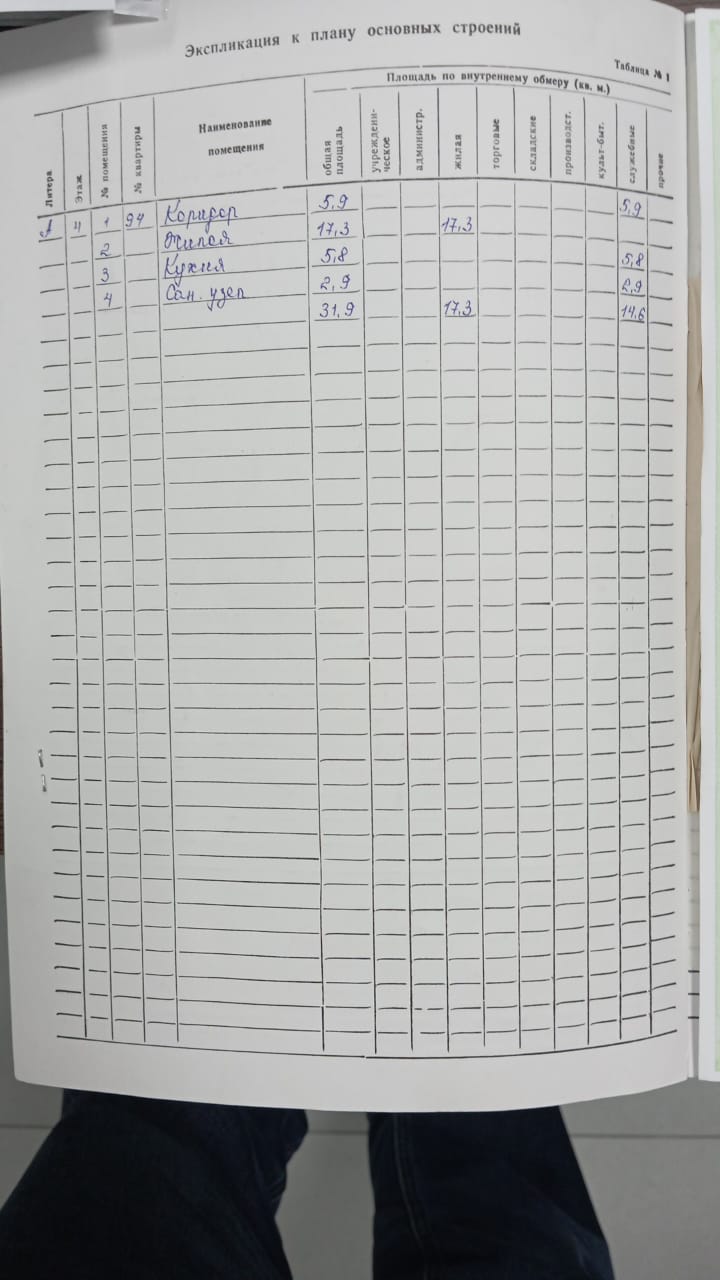 Экспликация к плану основных строений
Таблица № 1
Площадь по внутреннему обмеру (кв. м.)
Литера Этаж № помещения № квартиры Наименование помещения общая площадь учреждени-ческое администр. жилая торговые складские производст. культ-быт. служебные прочие
А 4 1 94 Коридор 5,9 5,9
2 Жилая 17,3 17,3
3 Кухня 5,8 5,8
4 Сан. узел 2,9 2,9
31,9 17,3 14,6